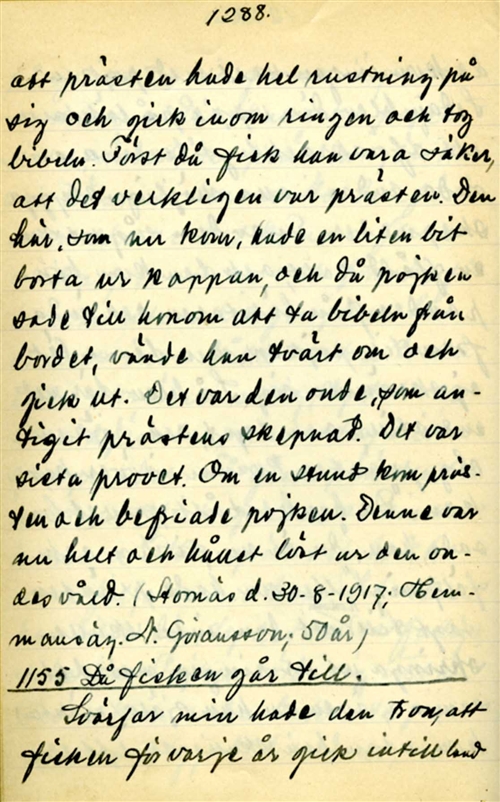 1288.
att prästen hade hel rustning på
sig och gick inom ringen och tog
bibeln. Först då fick han vara säker,
att det verkligen var prästen. Den
här, som nu kom, hade en liten bit
borta ur kappan, och då pojken
sade till honom att ta bibeln från
bordet, vände han tvärt om och
gick ut. Det var den onde, som an-
tigit prästens skepnad. Det var
sista provet. Om en stund kom präs-
ten och befriade pojken. Denne var
nu helt och hållet löst ur den on-
des våld. (Stornäs d. 30-8-1917; Hem-
mansäg. N. Göransson; 50 år)
1155 Då fisken går till.
Svärfar min hade den tron, att
fisken för varje år gick intill land